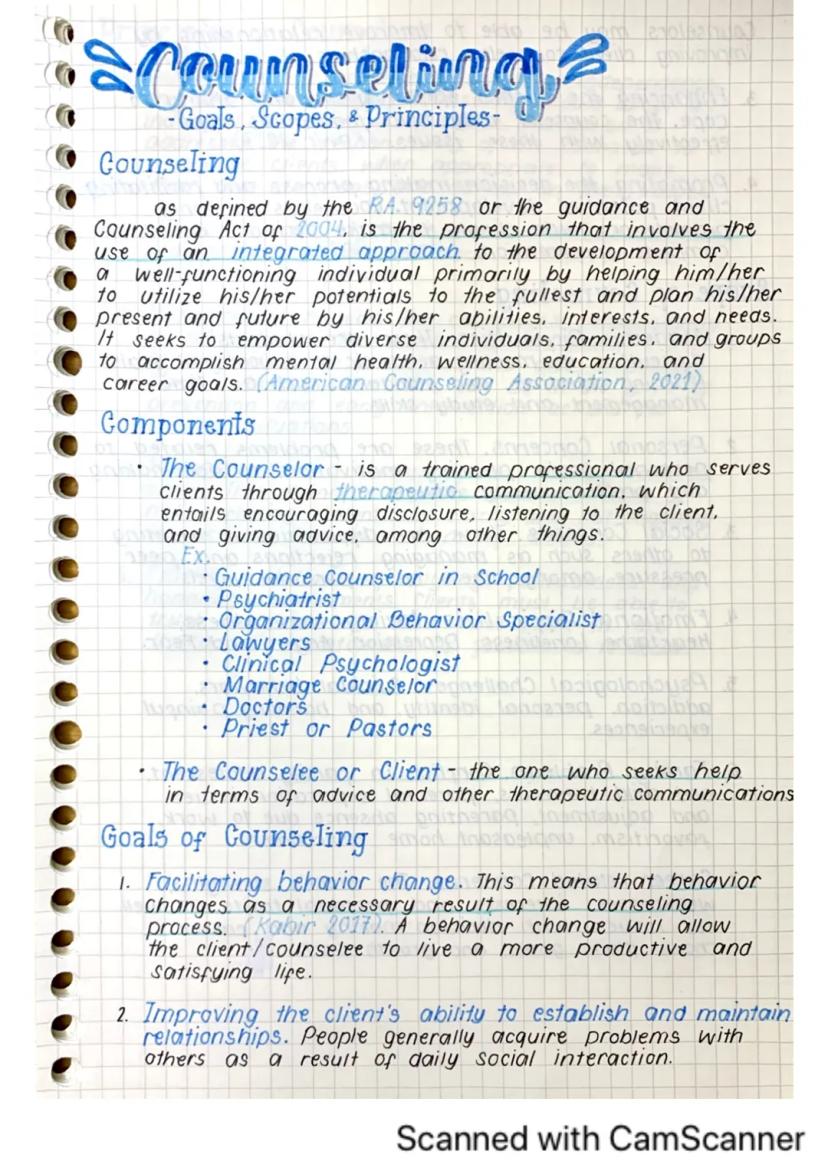 Counseling
-Goals, Scopes, & Principles-
Counseling
as defined by the RA 9258 or the guidance and
Counseling Act of 2004, is the profession that involves the
use of an integrated approach to the development of
a well-functioning individual primarily by helping him/her
to utilize his/her potentials to the fullest and plan his/her
present and future by his/her abilities, interests, and needs.
It seeks to empower diverse individuals, families, and groups
to accomplish mental health, wellness, education, and
career goals. (American Counseling Association, 2021)
Components
• The Counselor - is a trained professional who serves
clients through therapeutic communication, which
entails encouraging disclosure, listening to the client,
and giving advice, among other things.
Ex.
• Guidance Counselor in School
• Psychiatrist
• Organizational Behavior Specialist
• Lawyers
• Clinical Psychologist
• Marriage Counselor
• Doctors
• Priest or Pastors
• The Counselee or Client - the one who seeks help
in terms of advice and other therapeutic communications
Goals of Counseling
1. Facilitating behavior change. This means that behavior
changes as a necessary result of the counseling
process. (Kabir 2017). A behavior change will allow
the client/counselee to live a more productive and
satisfying life.
2. Improving the client's ability to establish and maintain
relationships. People generally acquire problems with
others as a result of daily social interaction.
Scanned with CamScanner